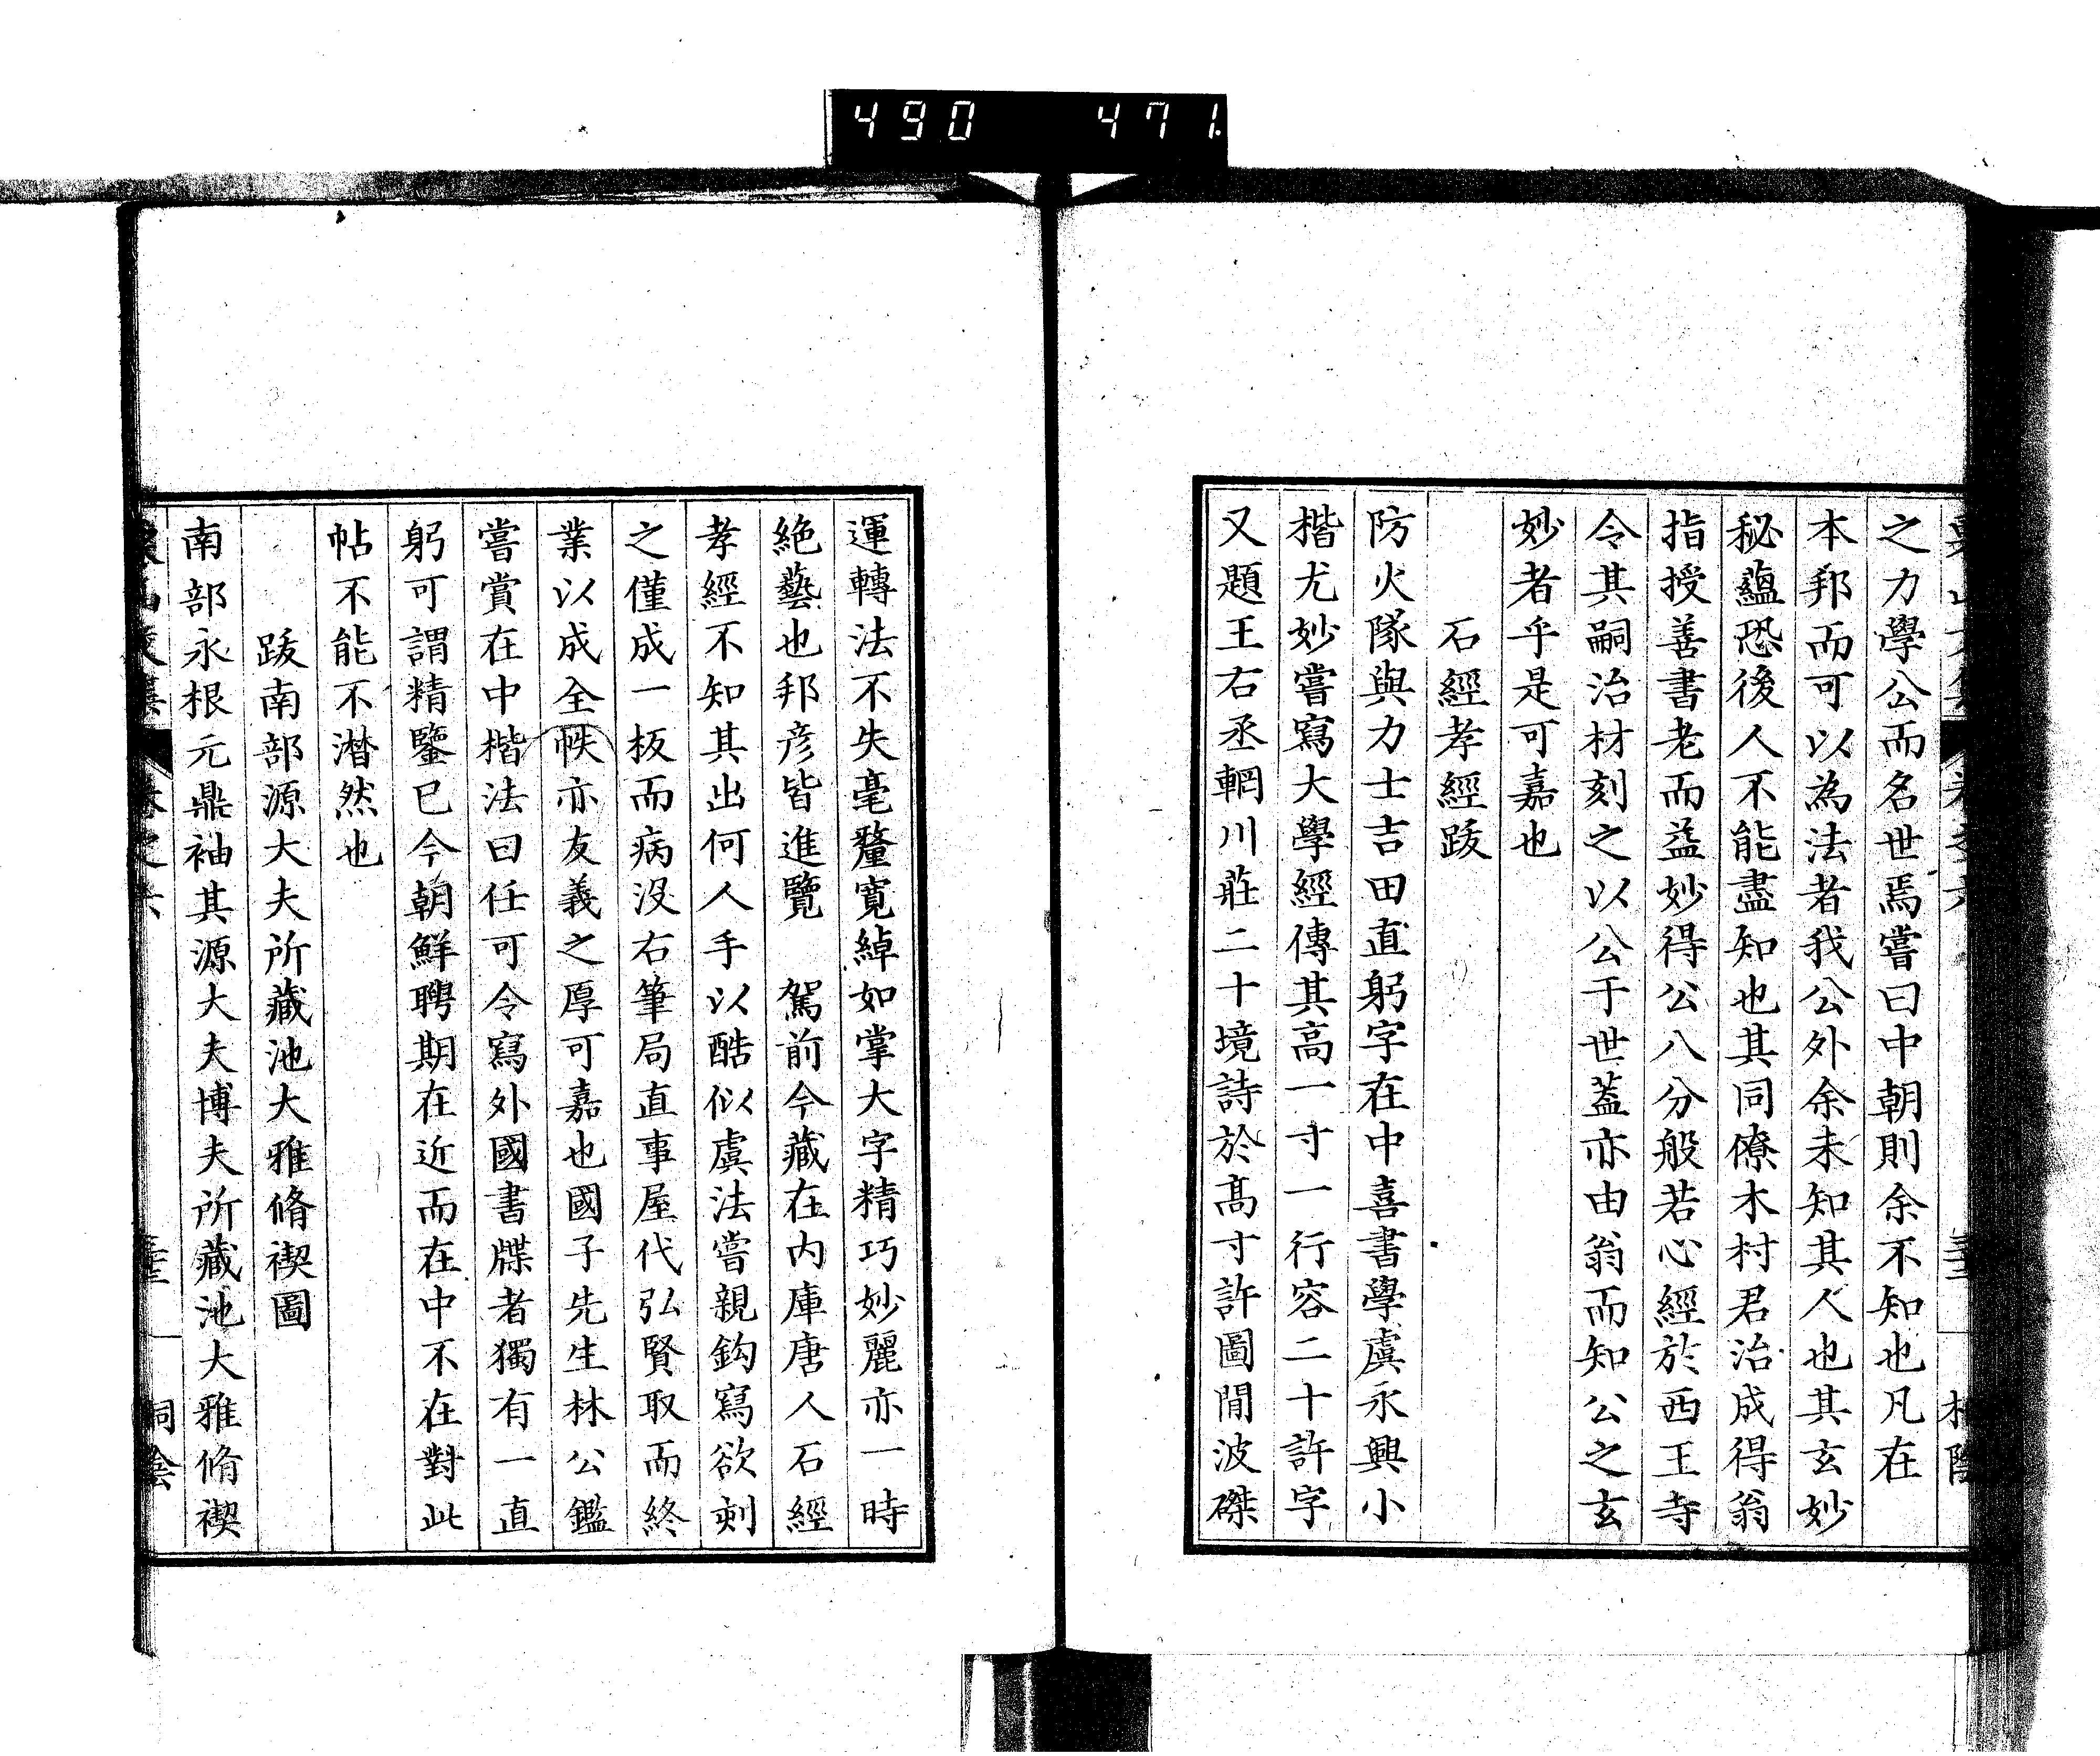 490 471
之力學公而名世焉嘗曰中朝則余不知也凡在
本邦而可以為法者我公外余未知其人也其玄妙
秘蘊恐後人不能盡知也其同僚木村君治成得翁
指授善書老而益妙得公八分般若心經於西王寺
令其嗣治材刻之以公于世蓋亦由翁而知公之玄
妙者乎是可嘉也
石經孝經跋
防火隊與力士吉田直躬字在中喜書學虞永興小
楷尤妙嘗寫大學經傳其高一寸一行容二十許字
又題王右丞輞川莊二十境詩於高寸許圖間波磔
運轉法不失毫釐寬綽如掌大字精巧妙麗亦一時
絶藝也邦彦皆進覽 駕前今藏在内庫唐人石經
孝經不知其出何人手以酷似虞法嘗親鈎寫欲刻
之僅成一板而病没右筆局直事屋代弘賢取而終
業以成全帙亦友義之厚可嘉也國子先生林公鑑
嘗賞在中楷法曰任可令寫外國書牒者獨有一直
躬可謂精鑒已今朝鮮聘期在近而在中不在對此
帖不能不潛然也
跋南部源大夫所藏池大雅脩禊圖
南部永根元鼎袖其源大夫博夫所藏池大雅脩禊